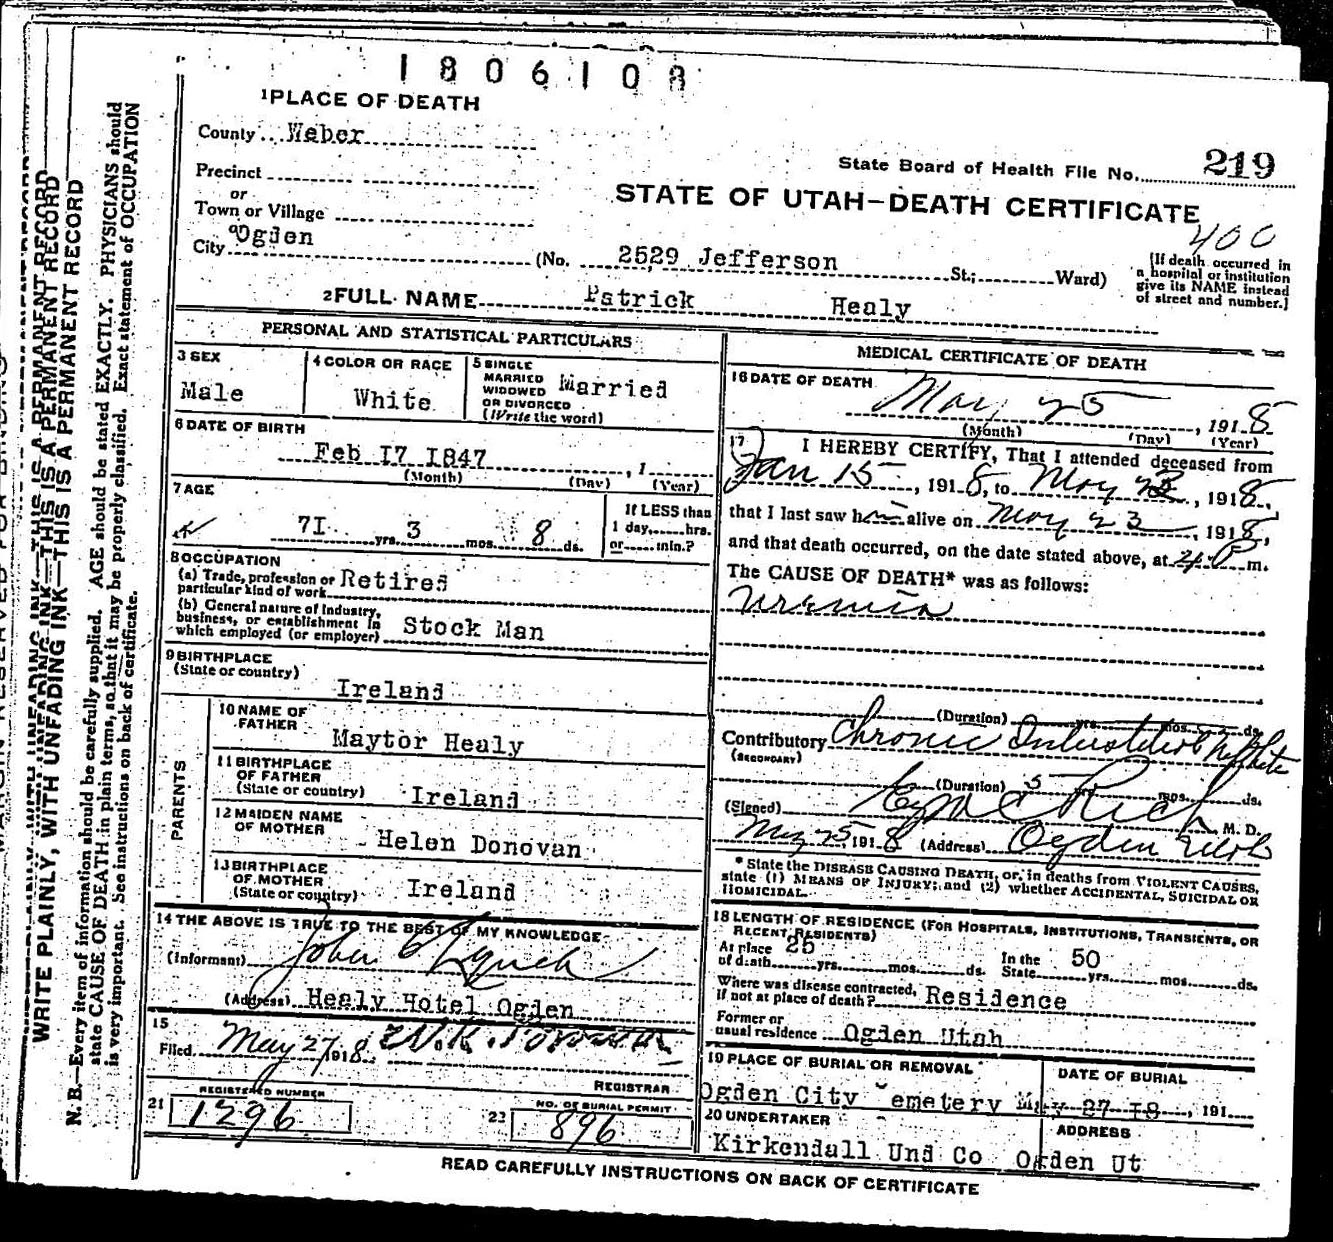 1806108
1 PLACE OF DEATH
County Weber
State Board of Health File No. 219
Precinct
or
STATE OF UTAH—DEATH CERTIFICATE
Town or Village
400
City Ogden (No. 2529 Jefferson St; Ward)
[If death occurred in a hospital or institution give its NAME instead of street and number.]
2 FULL NAME Patrick Healy
PERSONAL AND STATISTICAL PARTICULARS
3 SEX
Male
4 COLOR OR RACE
White
5 SINGLE
MARRIED
WIDOWED
OR DIVORCED
(Write the word)
Married
6 DATE OF BIRTH
Feb I7 I847, 1
(Month) (Day) (Year)
7 AGE
7I yrs. 3 mos. 8 ds.
If LESS than
1 day, hrs.
or min.?
8 OCCUPATION
(a) Trade, profession or
particular kind of work Retired
(b) General nature of industry,
business, or establishment in
which employed (or employer) Stock Man
9 BIRTHPLACE
(State or country)
Ireland
PARENTS
10 NAME OF
FATHER
Maytor Healy
11 BIRTHPLACE
OF FATHER
(State or country) Ireland
12 MAIDEN NAME
OF MOTHER
Helen Donovan
13 BIRTHPLACE
OF MOTHER
(State or country) Ireland
14 THE ABOVE IS TRUE TO THE BEST OF MY KNOWLEDGE
(Informant) John C Lynch
(Address) Healy Hotel Ogden
15
Filed May 27, 1918
REGISTRAR
21 REGISTERED NUMBER
1296
22 NO. OF BURIAL PERMIT
896
MEDICAL CERTIFICATE OF DEATH
16 DATE OF DEATH
May 25, 1918
(Month) (Day) (Year)
17 I HEREBY CERTIFY, That I attended deceased from
Jan 15, 1918, to May 23, 1918,
that I last saw him alive on May 23, 1918,
and that death occurred, on the date stated above, at m.
The CAUSE OF DEATH* was as follows:
Uremia
(Duration) yrs. mos. ds.
Contributory Chronic Interstitial Nephritis
(SECONDARY)
(Duration) 5 yrs. mos. ds.
(Signed) Rich M. D.
May 25, 1918 (Address) Ogden Utah
* State the DISEASE CAUSING DEATH, or, in deaths from VIOLENT CAUSES,
state (1) MEANS OF INJURY; and (2) whether ACCIDENTAL, SUICIDAL OR
HOMICIDAL.
18 LENGTH OF RESIDENCE (FOR HOSPITALS, INSTITUTIONS, TRANSIENTS, OR
RECENT RESIDENTS)
At place
of death 25 yrs. mos. ds.
In the
State 50 yrs. mos. ds.
Where was disease contracted,
if not at place of death? Residence
Former or
usual residence Ogden Utah
19 PLACE OF BURIAL OR REMOVAL
Ogden City emetery
DATE OF BURIAL
May 27 I8, 191
20 UNDERTAKER
Kirkendall Und Co
ADDRESS
Ogden Ut
READ CAREFULLY INSTRUCTIONS ON BACK OF CERTIFICATE
WRITE PLAINLY, WITH UNFADING INK—THIS IS A PERMANENT RECORD
N. B.—Every item of information should be carefully supplied. AGE should be stated EXACTLY. PHYSICIANS should
state CAUSE OF DEATH in plain terms, so that it may be properly classified. Exact statement of OCCUPATION
is very important. See instructions on back of certificate.